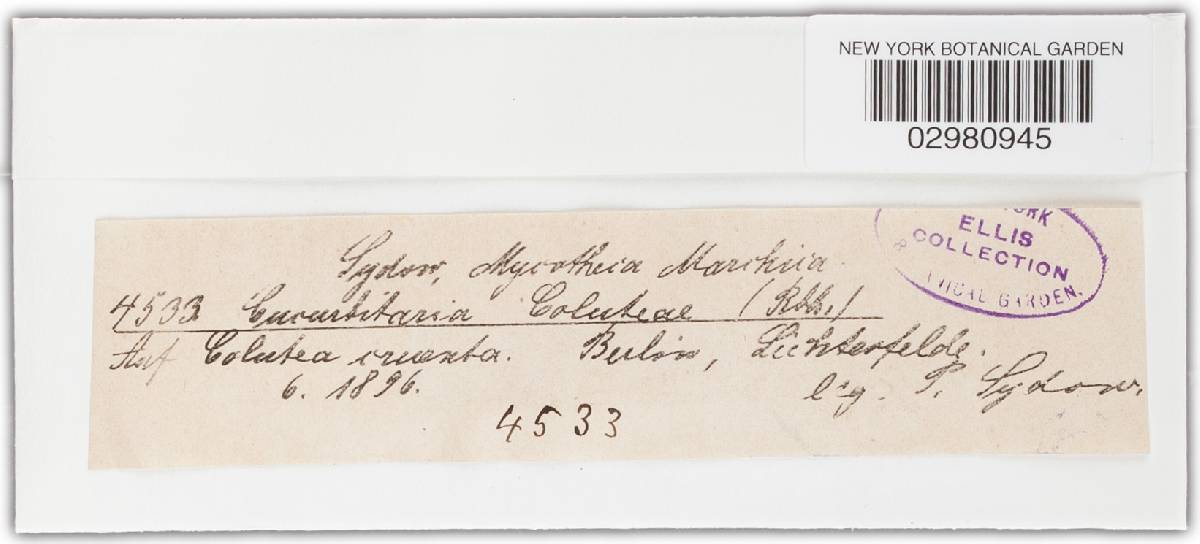 NEW YORK BOTANICAL GARDEN
02980945
ORK
ELLIS
COLLECTION
ICAL GARDEN.
Sydow, Mycotheca Marchica.
4533 Cucurbitaria Coluteae (Rbh.)
Auf Colutea cruenta. Berlin, Lichterfelde.
6. 1896. leg. P. Sydow.
4533